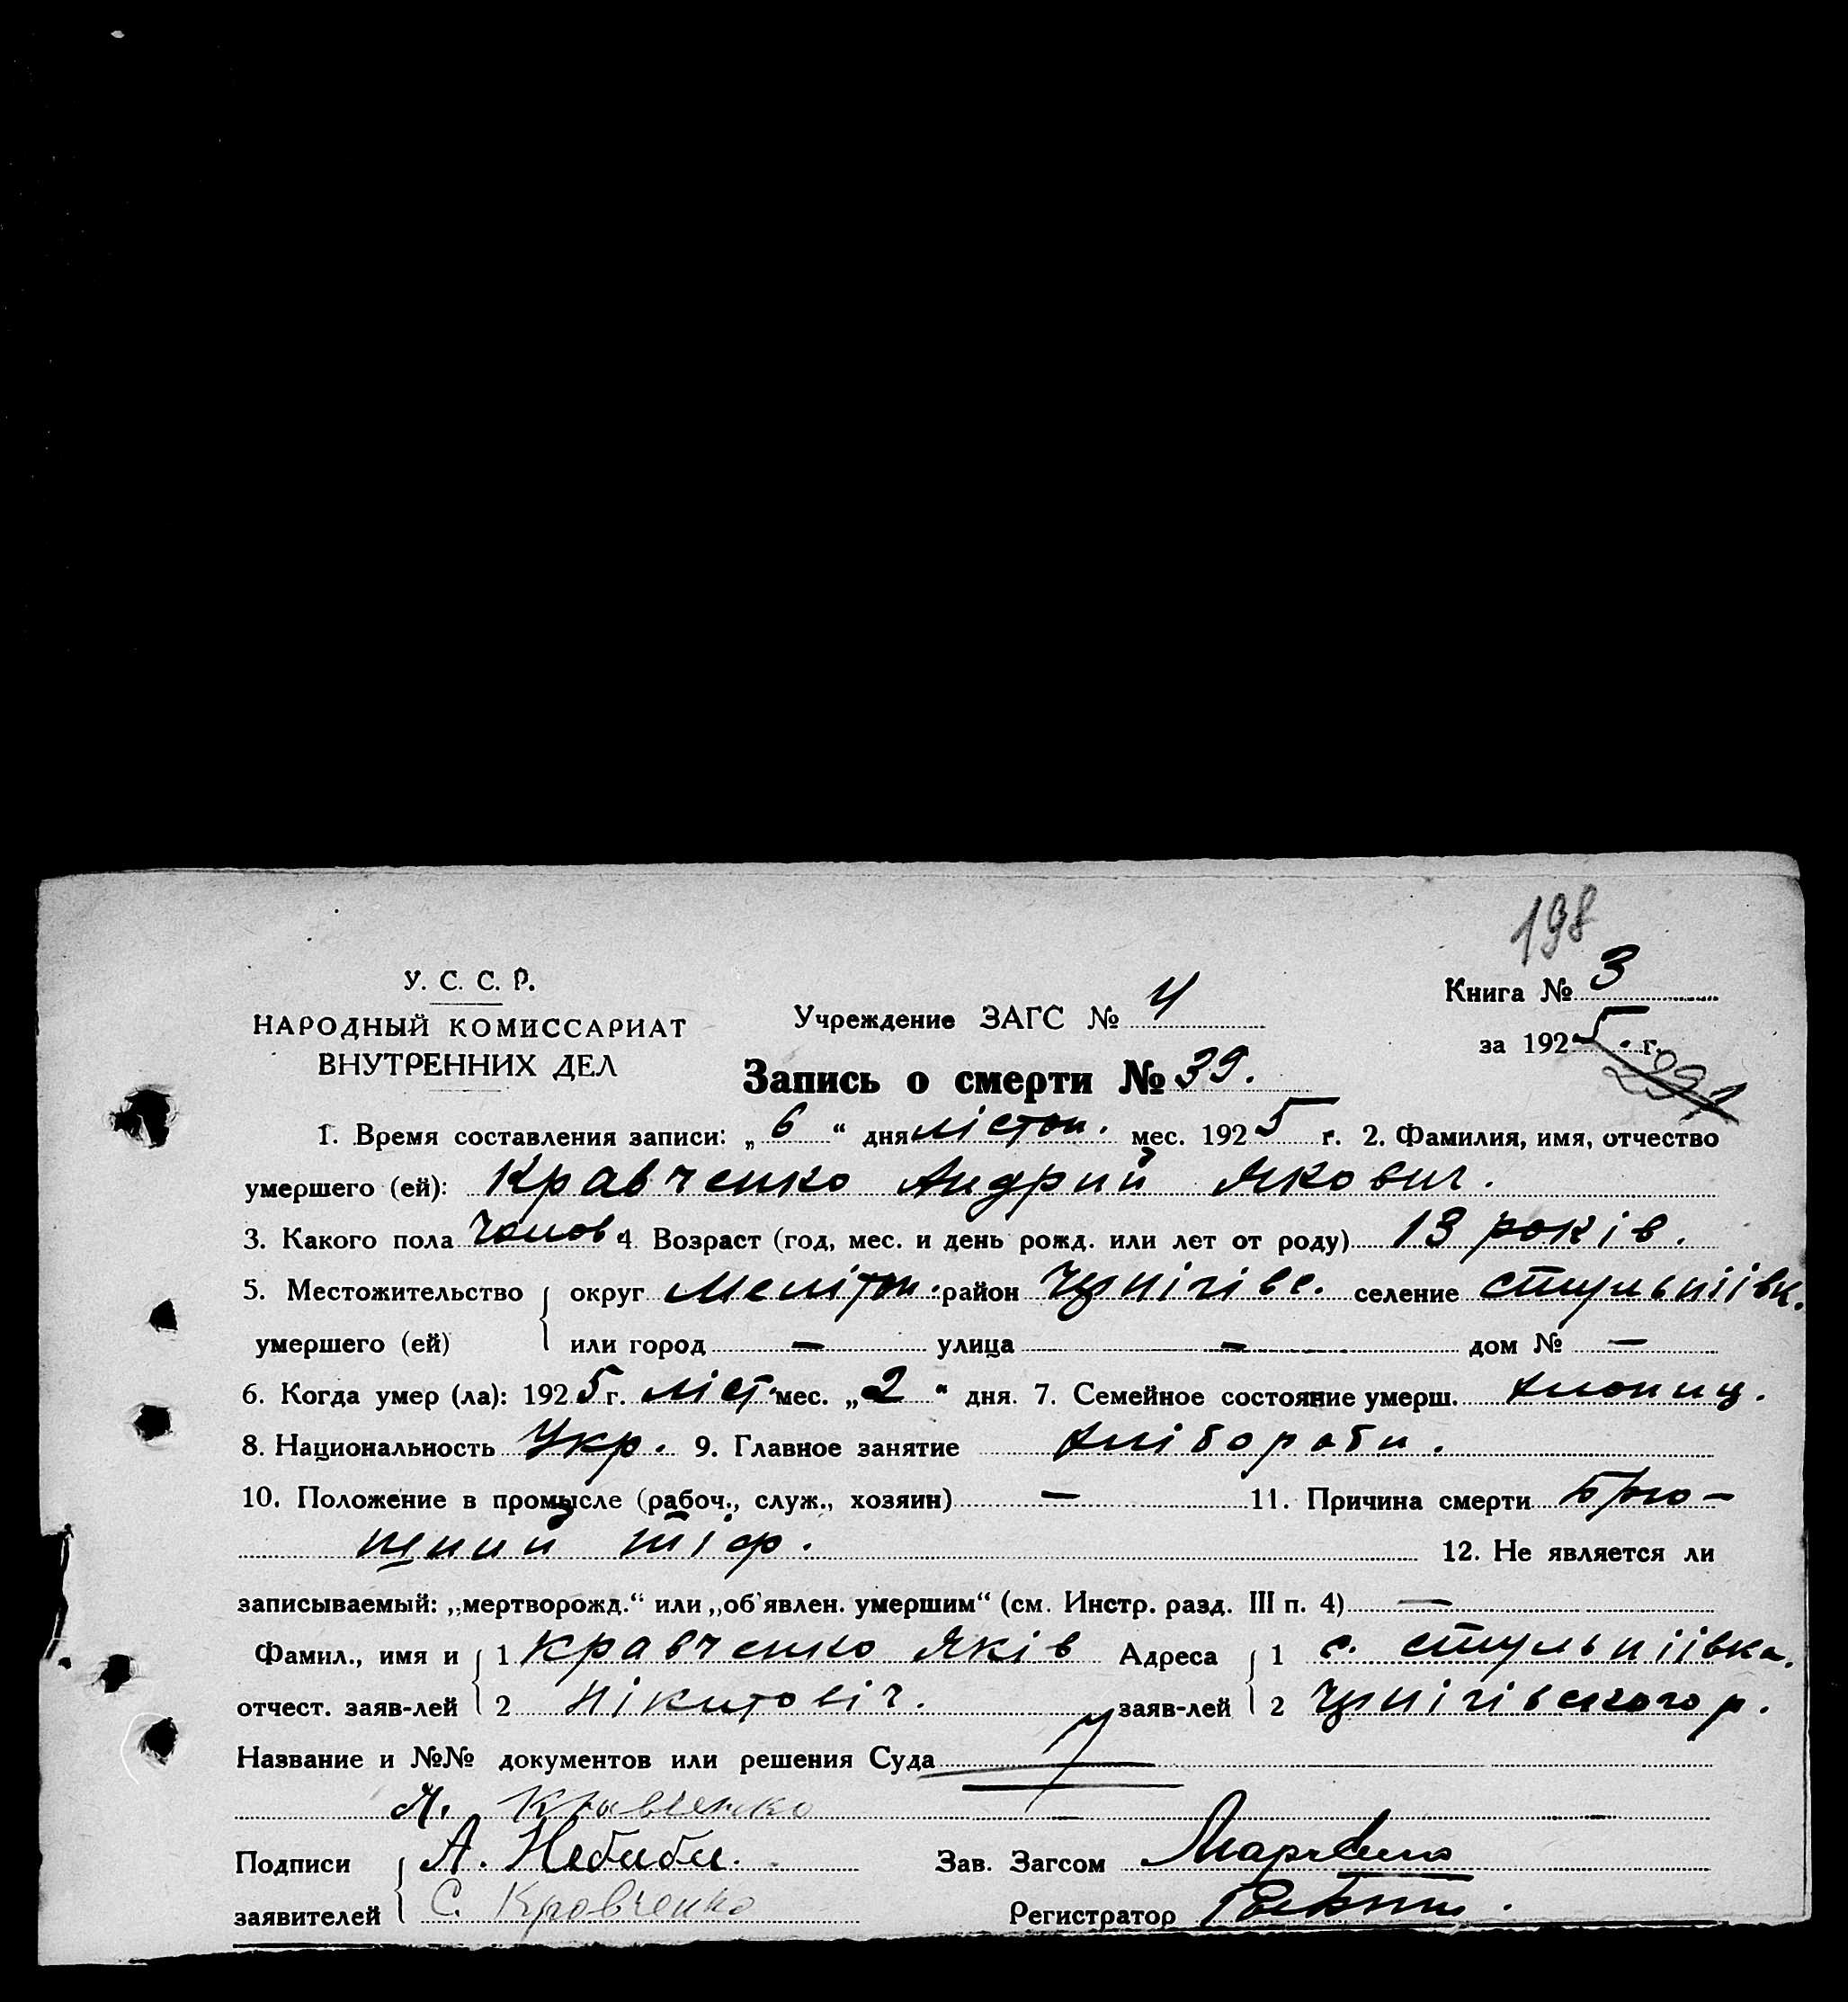 198
У. С. С. Р.
НАРОДНЫЙ КОМИССАРИАТ
ВНУТРЕННИХ ДЕЛ
Учреждение ЗАГС № 4
Книга № 3
за 1925 г.
Запись о смерти № 39.
1. Время составления записи: „6“ дня лістоп. мес. 1925 г. 2. Фамилия, имя, отчество
умершего (ей): Кравченко Андрий Якович.
3. Какого пола чолов. 4. Возраст (год, мес. и день рожд. или лет от роду) 13 років.
5. Местожительство округ Меліт. район Чернігівс. селение Стульніївк.
умершего (ей) или город — улица — дом № —
6. Когда умер (ла): 1925 г. ліст. мес. „2“ дня. 7. Семейное состояние умерш. хлопиц.
8. Национальность Укр. 9. Главное занятие хлібороби.
10. Положение в промысле (рабоч., служ., хозяин) — 11. Причина смерти Брю-
шний тіф. 12. Не является ли
записываемый: „мертворожд.“ или „об'явлен. умершим“ (см. Инстр. разд. III п. 4) —
Фамил., имя и 1 Кравченко Яків Адреса 1 с. Стульніївка.
отчест. заяв-лей 2 Нікитовіч. заяв-лей 2 Чернігівського р.
Название и №№ документов или решения Суда
Я. Кравченко
Подписи А. Небаба. Зав. Загсом
заявителей С. Кравченко Регистратор